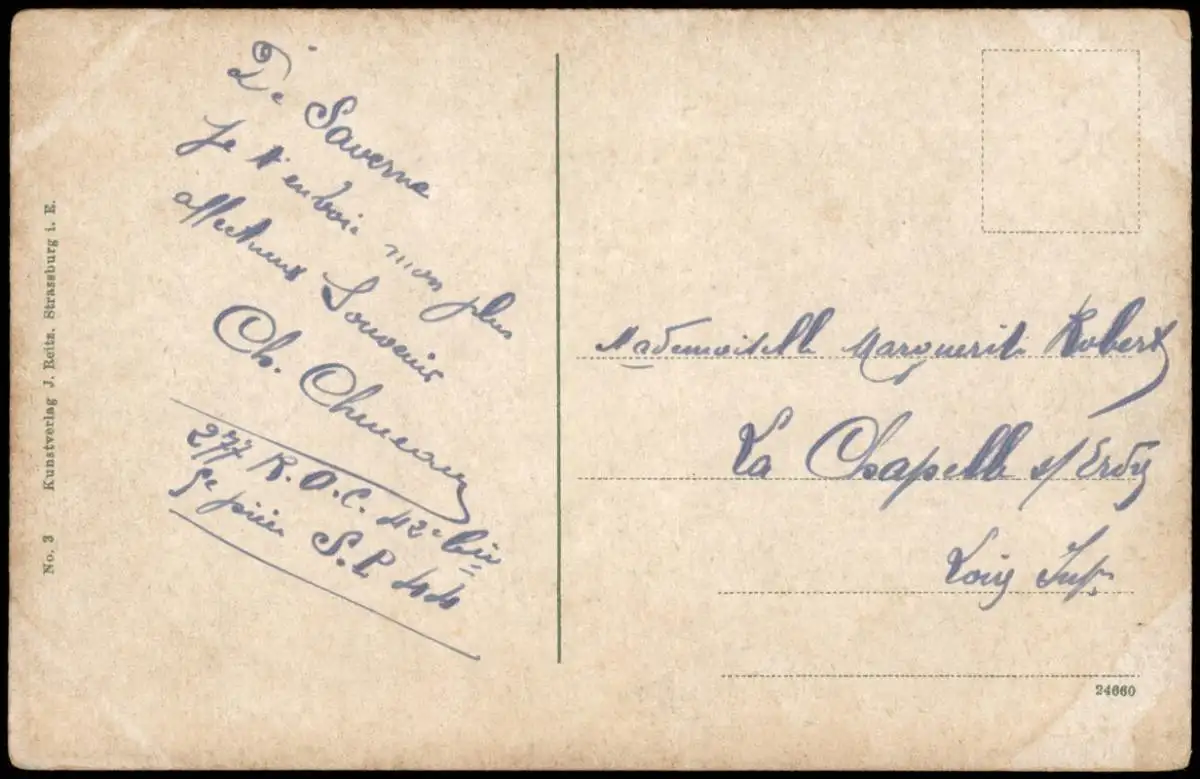 De Saverne
Je t'envoie mon plus
affectueux Souvenir
Ch.
277 R.A.C. 42e bie
5e pièce S.P. 44
Mademoiselle Marguerite Robert
La Chapelle s/ Erdre
Loire Infre
No. 3 Kunstverlag J. Reitz. Strassburg i. E.
24660